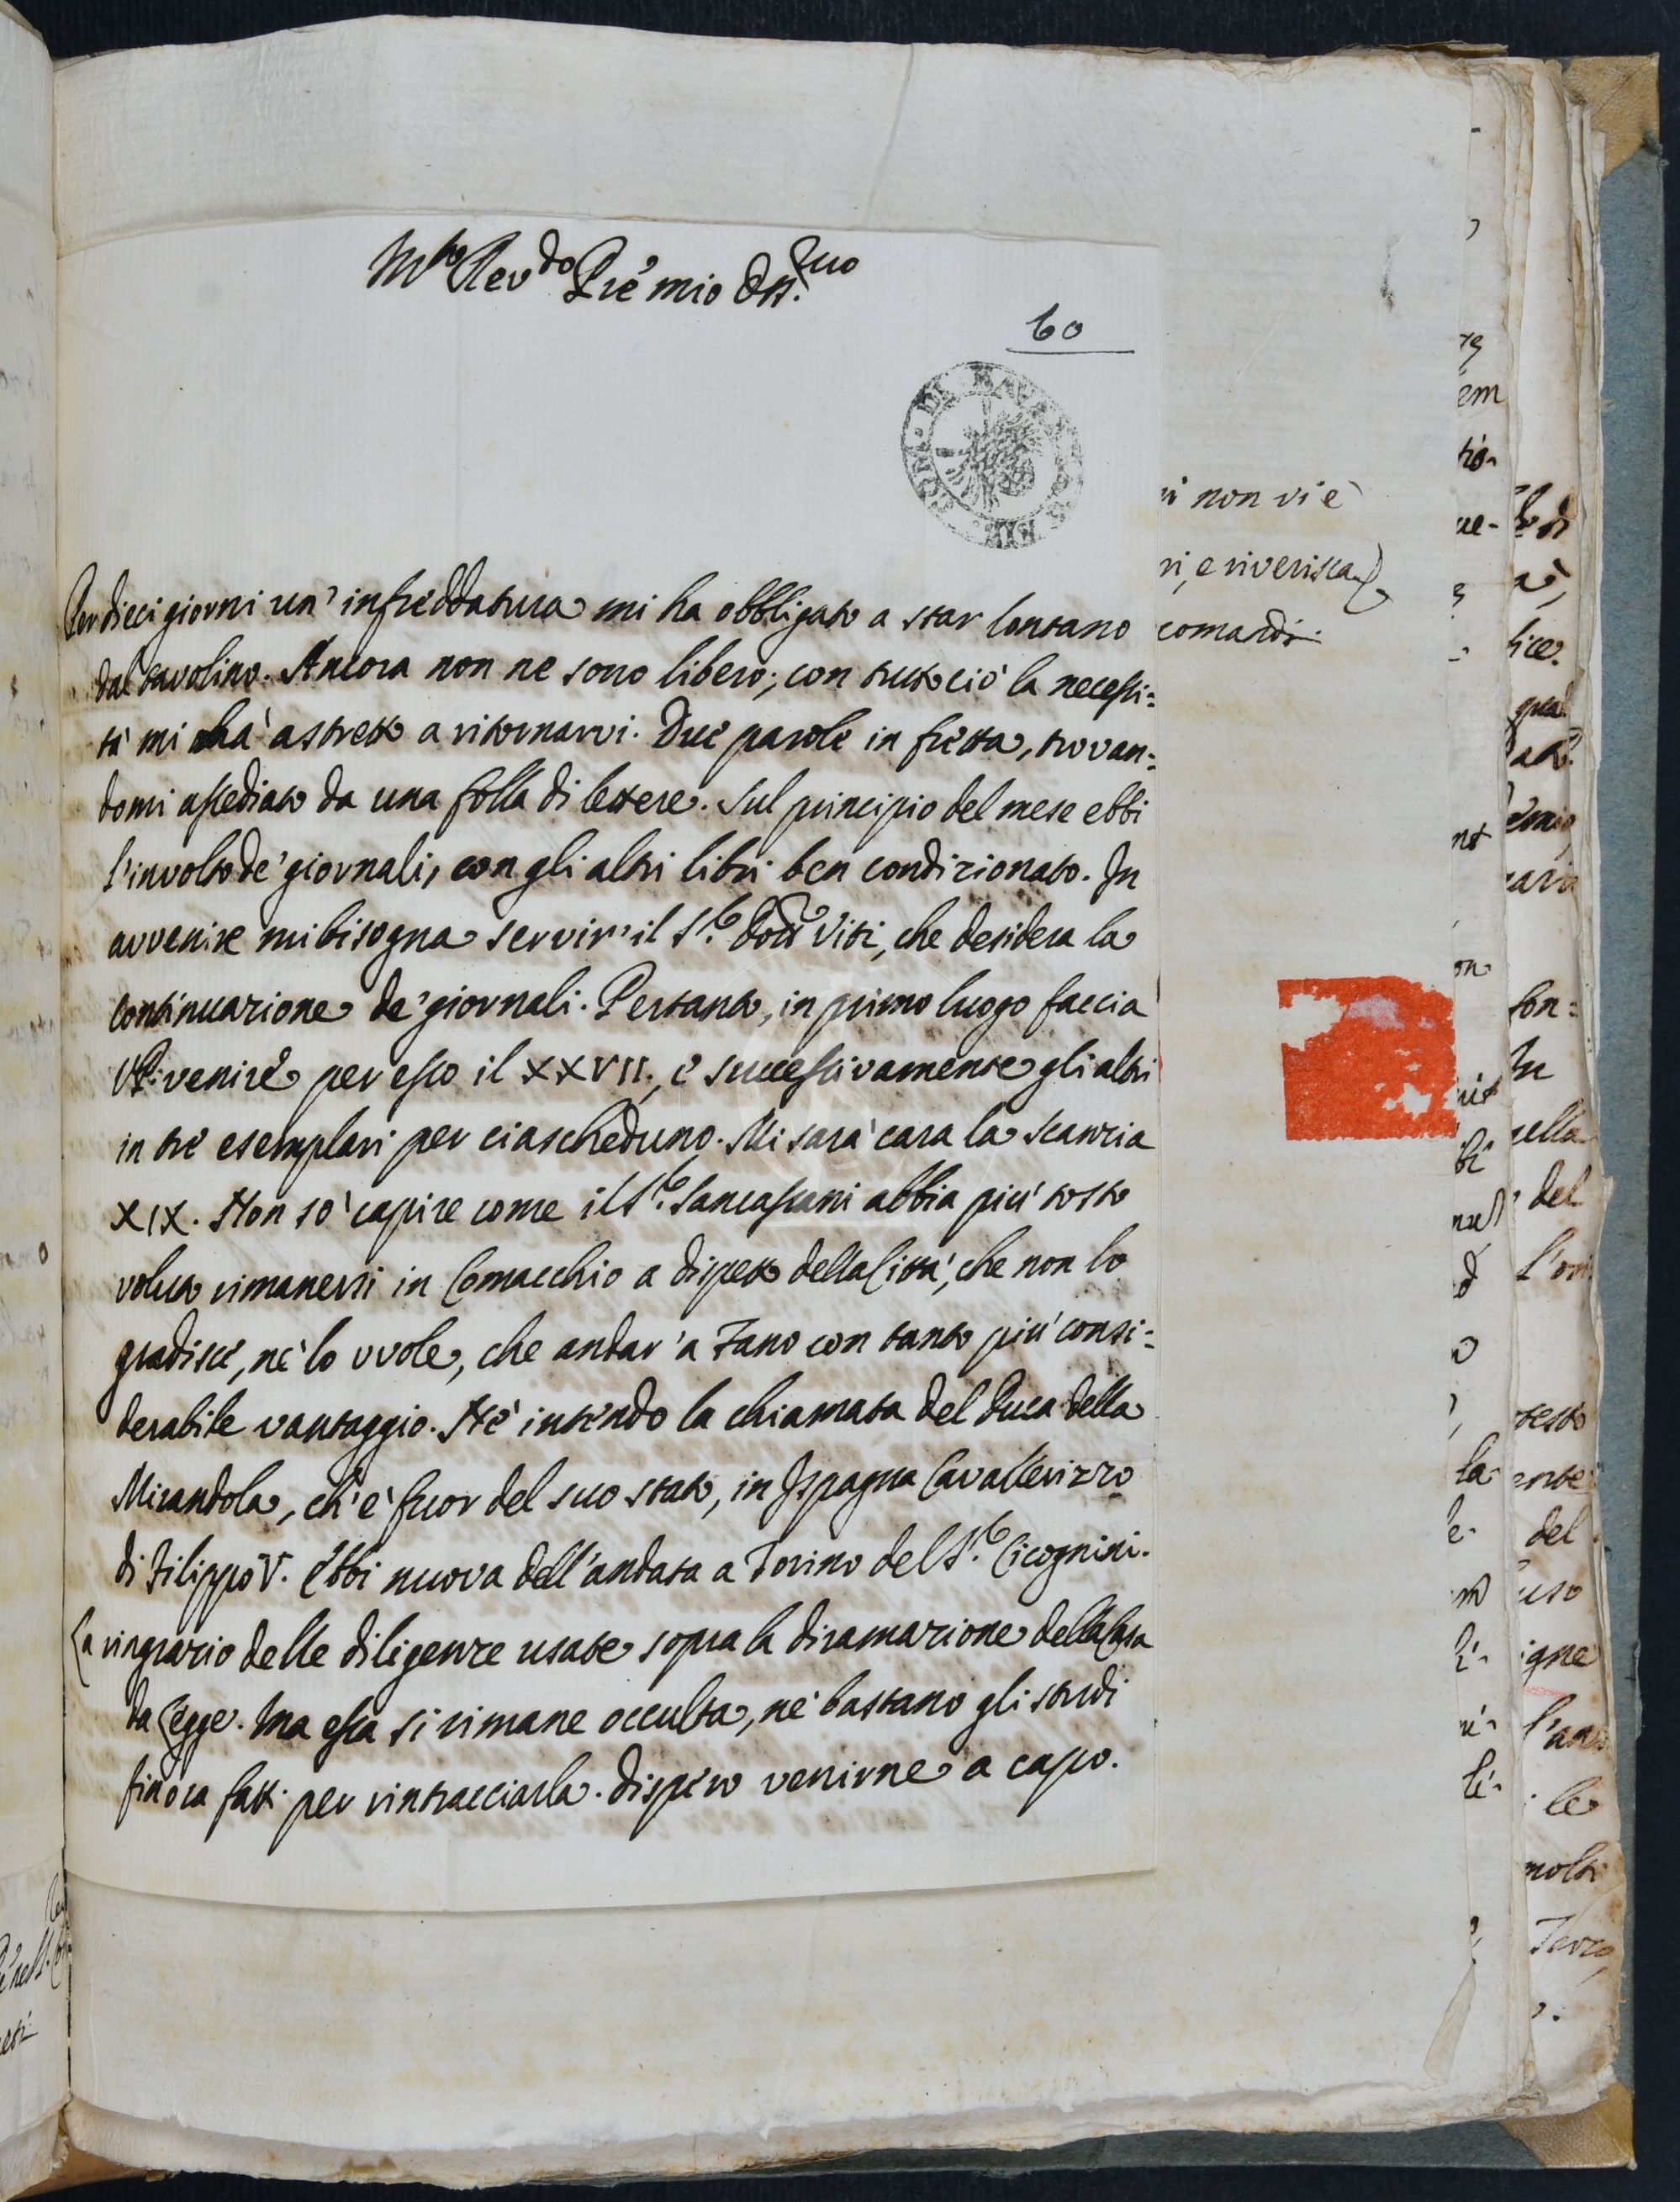 Mto Revdo Prē mio Oss.mo
60
Per dieci giorni un' infreddatura mi ha obbligato a star lontano
dal tavolino. Ancora non ne sono libero; con tutto ciò la necessi:
tà mi ha astretto a ritornarvi. Due parole in fretta, trovan:
domi assediato da una folla di lettere. Sul principio del mese ebbi
l'involto de' giornali, con gli altri libri ben condizionato. In
avvenire mi bisogna servir' il Sr. Dott Viti, che desidera la
continuazione de' giornali. Pertanto, in primo luogo faccia
VP. venire per esso il XXVII., e successivamente gli altri
in tre esemplari per ciascheduno. Mi sarà cara la Scanzia
XIX. Non sò capire come il Sr. Sancassani abbia più tosto
voluto rimanersi in Comacchio a dispetto della Città, che non lo
gradisce, nè lo vvole, che andar' a Fano con tanto più consi:
derabile vantaggio. Nè intendo la chiamata del Duca della
Mirandola, ch' è fuor del suo stato, in Ispagna Cavallerizzo
di Filippo V. Ebbi nuova dell' andata a Torino del Sr. Cicognini.
La ringrazio delle diligenze usate sopra la diramazione della Casa
da Legge. Ma essa si rimane occulta, nè bastano gli studi
finora fatti per rintracciarla. Dispero venirne a capo.
non vi è
e riverisca
comandi